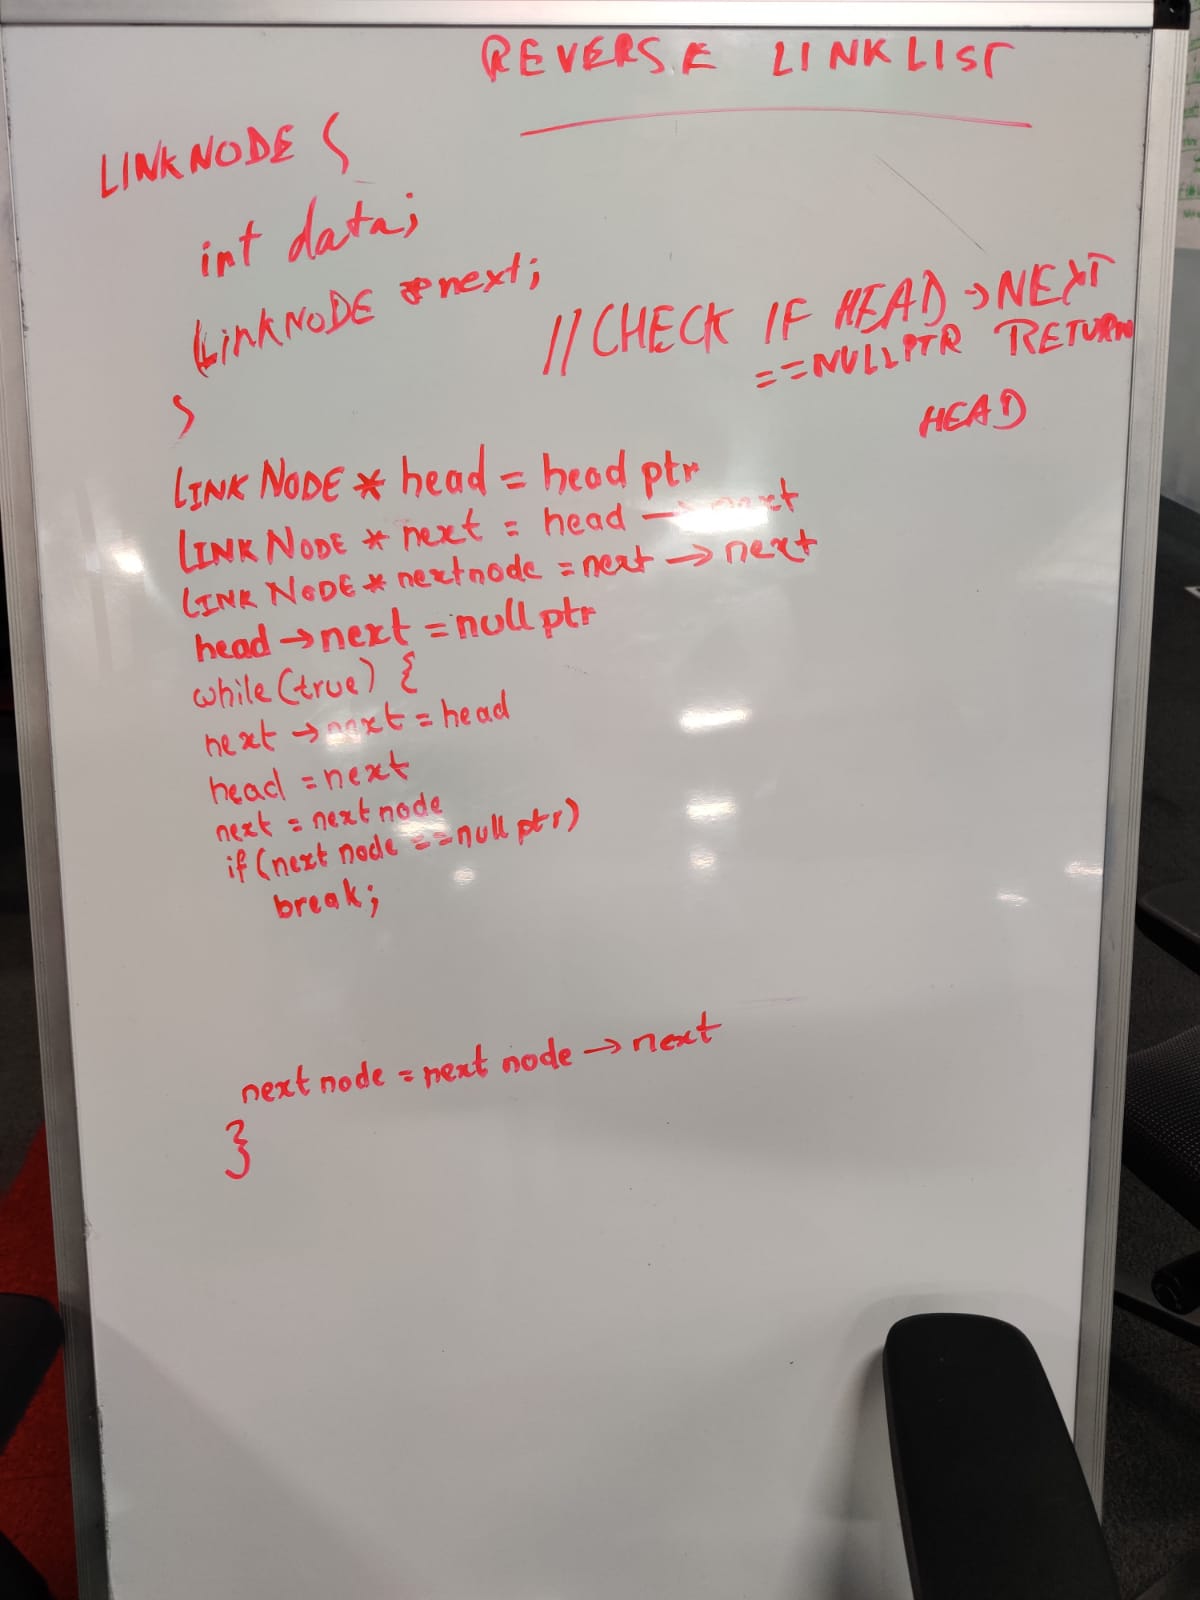 REVERSE LINKLIST
LINKNODE {
int data;
LinkNODE *next;
//CHECK IF HEAD →NEXT
==NULLPTR RETURN
HEAD
}
LINK NODE * head = head ptr
LINK NODE * next = head → next
LINK NODE * nextnode = next → next
head → next = null ptr
while (true) {
next → next = head
head = next
next = next node
if (next node == null ptr)
break;
next node = next node → next
}